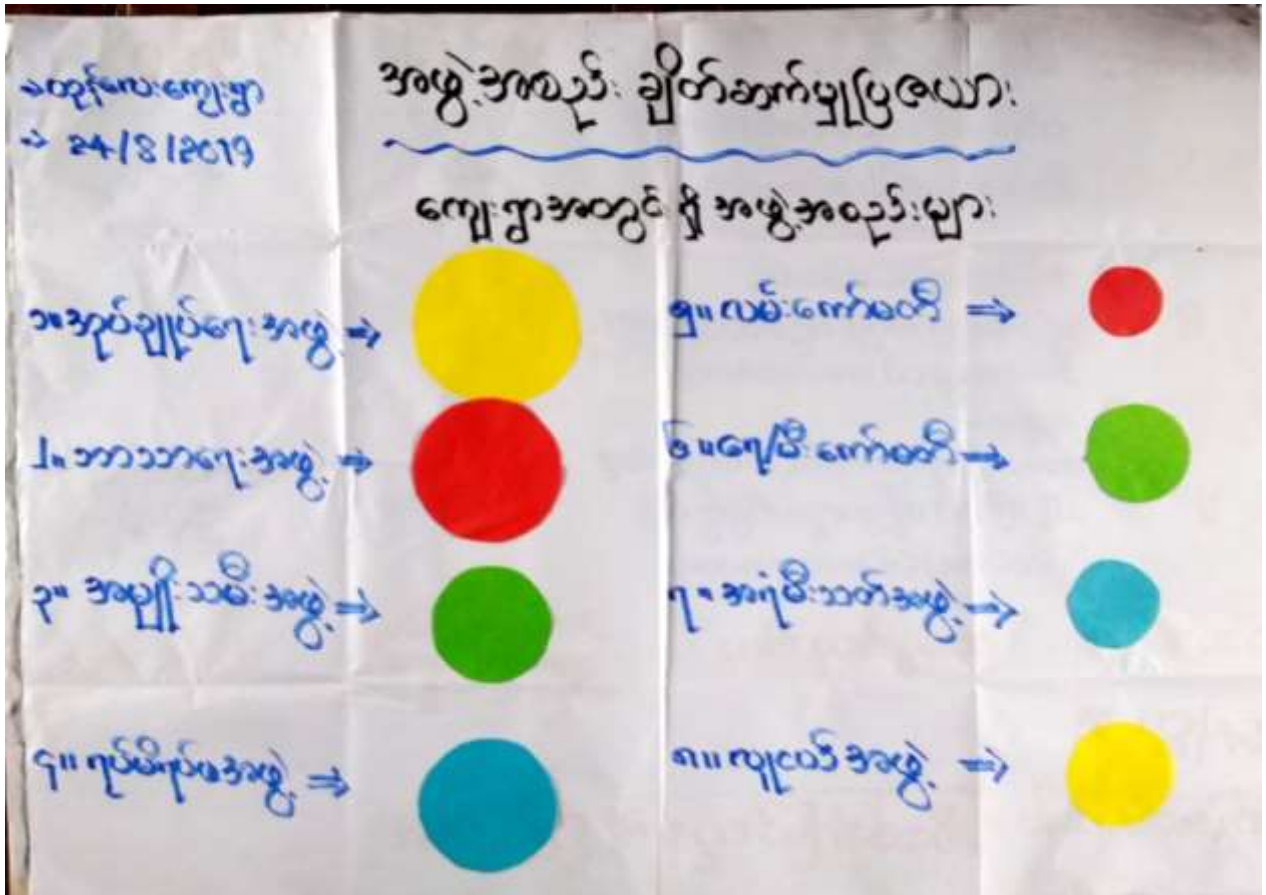 → ထုန်လေးကျေးရွာ
→ 24/8/2019
အဖွဲ့အစည်း ချိတ်ဆက်မှုပြဇယား
ကျေးရွာအတွင်းရှိ အဖွဲ့အစည်းများ
၁။ အုပ်ချုပ်ရေးအဖွဲ့ ⇒
၂။ ဘာသာရေးအဖွဲ့ ⇒
၃။ အမျိုးသမီးအဖွဲ့ ⇒
၄။ ရပ်မိရပ်ဖအဖွဲ့ ⇒
၅။ လမ်းကော်မတီ ⇒
၆။ ရေ/မီးကော်မတီ ⇒
၇။ အရံမီးသတ်အဖွဲ့ ⇒
၈။ လူငယ်အဖွဲ့ ⇒